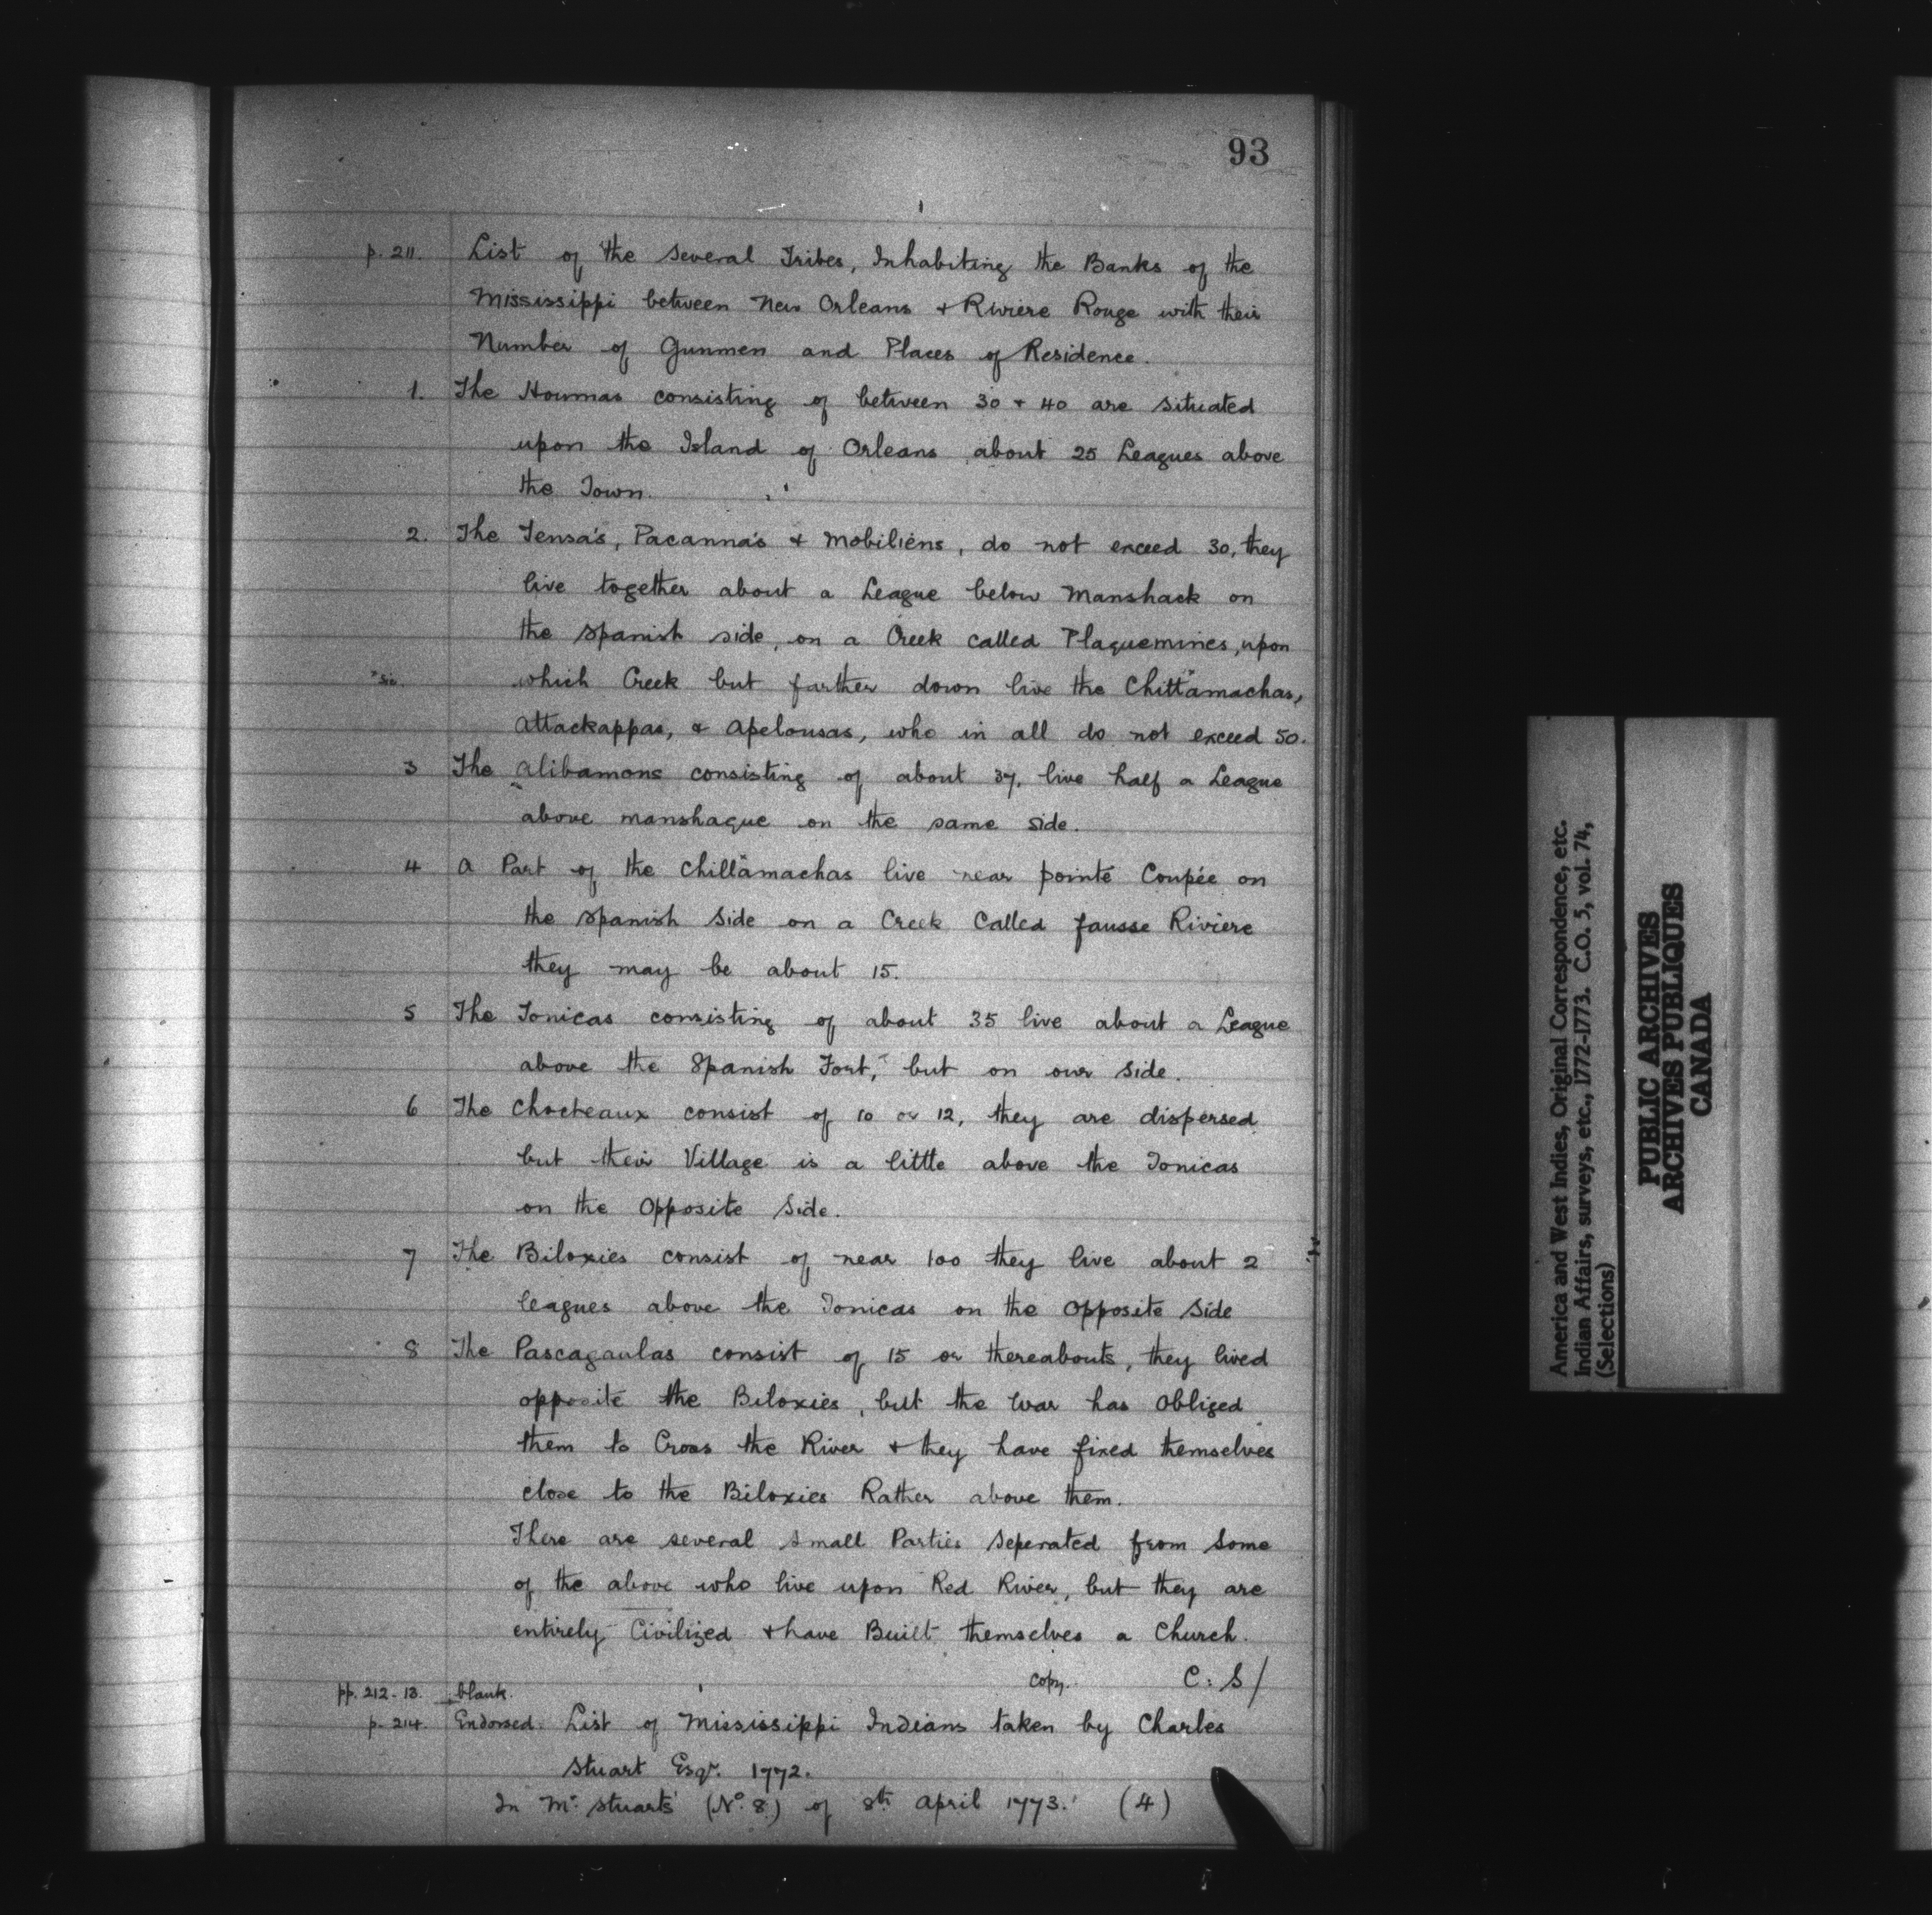 93
p. 211. List of the several Tribes, Inhabiting the Banks of the
Mississippi between New Orleans & Riviere Rouge with their
Number of Gunmen and Places of Residence.
1. The Houmas consisting of between 30 & 40 are situated
upon the Island of Orleans about 25 Leagues above
the Town.
2. The Tensa's, Pacanna's & Mobiliens, do not exceed 30, they
live together about a League below Manshack on
the Spanish side, on a Creek called Plaquemines, upon
*sic. which Creek but farther down live the Chittamachas,
Attackappas, & Apelousas, who in all do not exceed 50.
3 The Alibamons consisting of about 37, live half a League
above manshaque on the same side.
4 A Part of the Chillamachas live near pointe Coupée on
the Spanish Side on a Creek Called fausse Riviere
they may be about 15.
5 The Tonicas consisting of about 35 live about a League
above the Spanish Fort, but on our side.
6 The Chocteaux consist of 10 or 12, they are dispersed
but their Village is a little above the Tonicas
on the Opposite Side.
7 The Biloxies consist of near 100 they live about 2
leagues above the Tonicas on the Opposite Side
8 The Pascagaulas consist of 15 or thereabouts, they lived
opposite the Biloxies, but the War has Obliged
them to Cross the River & they have fixed themselves
close to the Biloxies Rather above them.
There are several Small Parties Seperated from Some
of the above who live upon Red River, but they are
entirely Civilized & have Built themselves a Church.
copy. C: S/
pp. 212-13. blank.
p. 214. Endorsed. List of Mississippi Indians taken by Charles
Stuart Esqr. 1772.
In Mr. Stuarts (No. 8.) of 8th April 1773. (4)
America and West Indies, Original Correspondence, etc.
Indian Affairs, surveys, etc., 1772-1773. C.O. 5, vol. 74,
(Selections)
PUBLIC ARCHIVES
ARCHIVES PUBLIQUES
CANADA